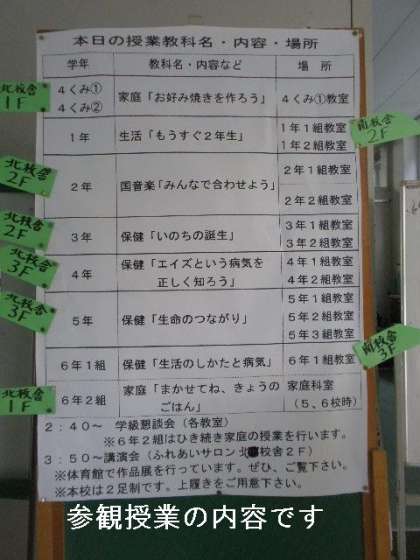 本日の授業教科名・内容・場所
学年 教科名・内容など 場所
北校舎 1F
4くみ① 4くみ② 家庭「お好み焼きを作ろう」 4くみ①教室
1年 生活「もうすぐ2年生」 1年1組教室 1年2組教室
南校舎 2F
北校舎 2F
2年 国音楽「みんなで合わせよう」 2年1組教室 2年2組教室
北校舎 2F
3年 保健「いのちの誕生」 3年1組教室 3年2組教室
北校舎 3F
4年 保健「エイズという病気を 正しく知ろう」 4年1組教室 4年2組教室
北校舎 3F
5年 保健「生命のつながり」 5年1組教室 5年2組教室 5年3組教室
6年1組 保健「生活のしかたと病気」 6年1組教室
南校舎 3F
北校舎 1F
6年2組 家庭「まかせてね、きょうの ごはん」 家庭科室 (5、6校時)
2:40～ 学級懇談会(各教室)
※6年2組はひき続き家庭の授業を行います。
3:50～講演会(ふれあいサロン 北校舎2F)
※体育館で作品展を行っています。ぜひ、ご覧下さい。
※本校は2足制です。上履きをご用意下さい。
参観授業の内容です